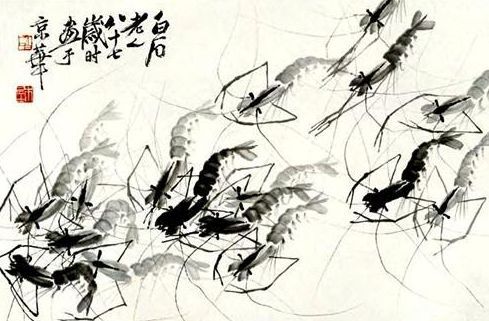 白石
老人
八十七
歲时
画于
京華